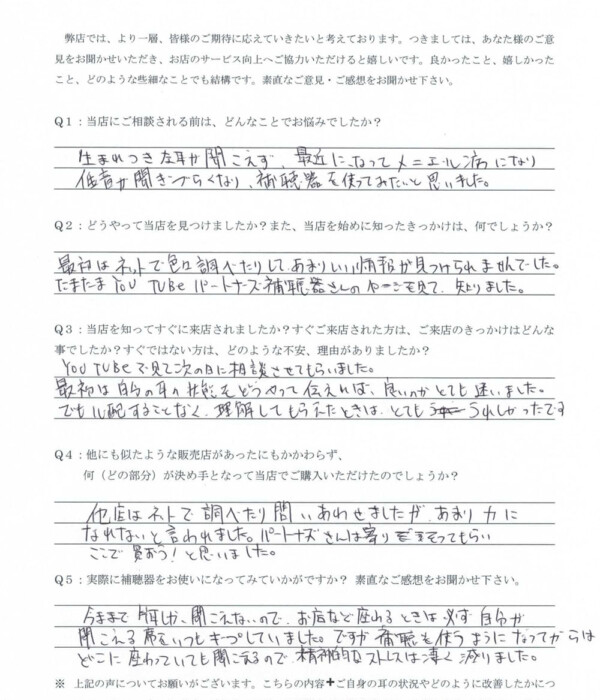 弊店では、より一層、皆様のご期待に応えていきたいと考えております。つきましては、あなた様のご意
見をお聞かせいただき、お店のサービス向上へご協力いただけると嬉しいです。良かったこと、嬉しかった
こと、どのような些細なことでも結構です。素直なご意見・ご感想をお聞かせ下さい。
Q1：当店にご相談される前は、どんなことでお悩みでしたか？
生まれつき左耳が聞こえず、最近になってメニエル病になり
低音が聞きづらくなり、補聴器を使ってみたいと思いました。
Q2：どうやって当店を見つけましたか？また、当店を始めに知ったきっかけは、何でしょうか？
最初はネットで色々調べたりして、あまりいい情報が見つけられませんでした。
たまたまYOU TUBE パートナーズ補聴器さんの ページを見て、知りました。
Q3：当店を知ってすぐに来店されましたか？すぐご来店された方は、ご来店のきっかけはどんな
事でしたか？すぐではない方は、どのような不安、理由がありましたか？
YOU TUBEで見て次の日に相談させてもらいました。
最初は自分の耳の状態をどうやって伝えれば、良いのかとても迷いました。
でも心配することなく、理解してもらえたときは、とても うれしかったです
Q4：他にも似たような販売店があったにもかかわらず、
何（どの部分）が決め手となって当店でご購入いただけたのでしょうか？
他店はネットで調べたり問いあわせましたが、あまり力に
なれないと言われました。パートナーズさんは寄りそってもらい
ここで買おう！と思いました。
Q5：実際に補聴器をお使いになってみていかがですか？ 素直なご感想をお聞かせ下さい。
今まで片耳しか、聞こえないので、お店など座わるときは必ず自分が
聞こえる席をいつもキープしていました。ですが補聴を使うようになってからは
どこに座わっていても聞こえるので精神的なストレスは凄く減りました。
※ 上記の声についてお願いがございます。こちらの内容+ご自身の耳の状況やどのように改善したかにつ